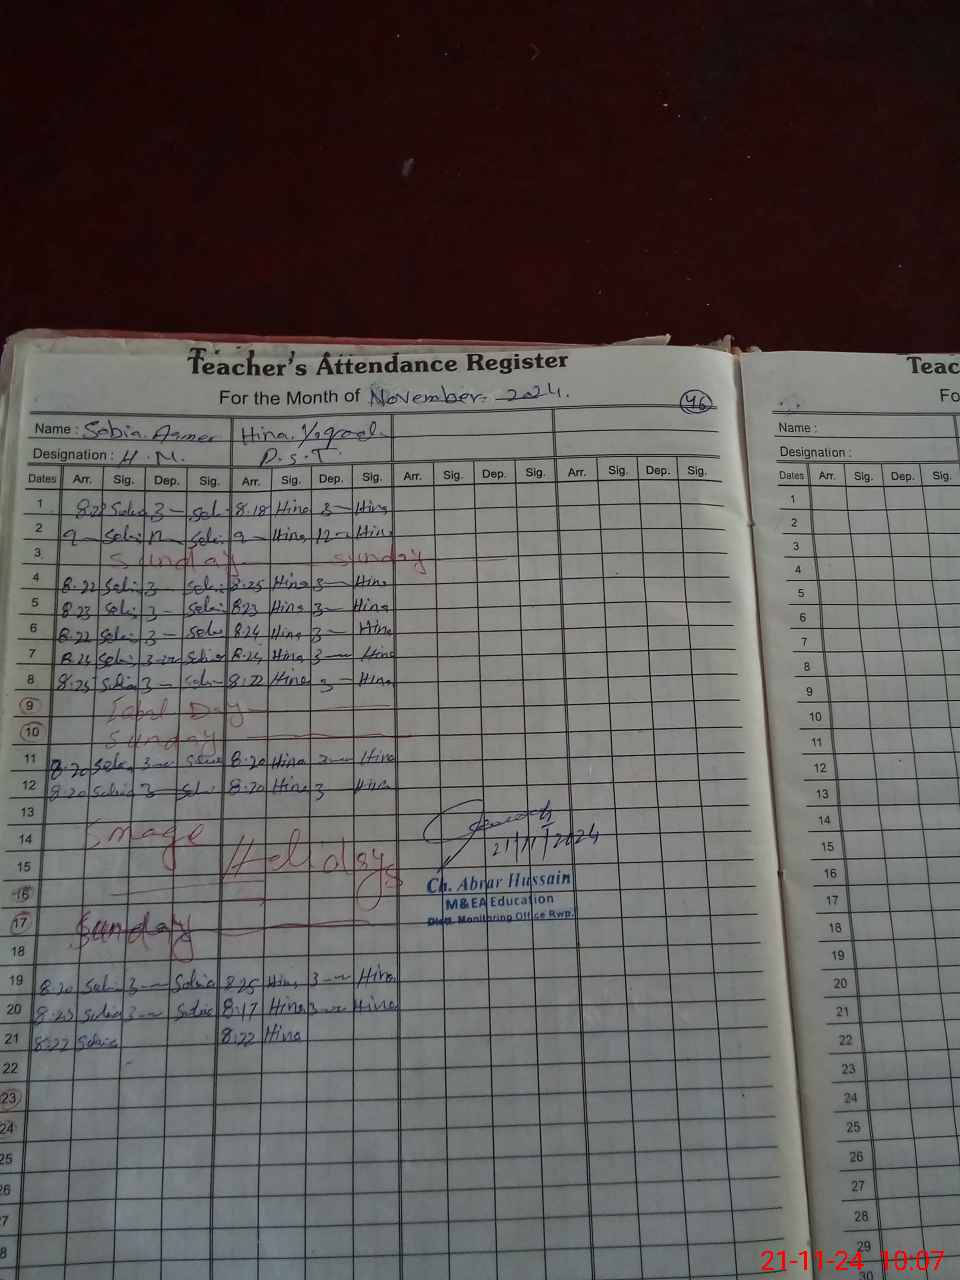 Teacher's Attendance Register
Teac
For the Month of November. 2024.
Fo
46
Name : Sabia. Hina.
Name :
Designation : H.M. P.S.T.
Designation :
Dates Arr. Sig. Dep. Sig. Arr. Sig. Dep. Sig. Arr. Sig. Dep. Sig. Arr. Sig. Dep. Sig.
Dates Arr. Sig. Dep. Sig
1 3 8.18 Hina 3 Hina
2 9 12 9 Hina 12 Hina
3 Sunday sunday
4 8.22 3 8.25 Hina 3 Hina
5 8.23 3 8.23 Hina 3 Hina
6 8.22 3 8.24 Hina 3 Hina
7 3 Hina 3 Hina
8 8.25 Sabia 3 8.22 Hina 3 Hina
9 Iqbal Day
10 Sunday
11 8.20 3 8.20 Hina 3 Hina
12 8.20 Sabia 3 8.20 Hina 3 Hina
13
14 Smoge
15 Holidays
16
17 Sunday
18
19 8.20 3 Sabia 8.25 Hina 3 Hina
20 8.23 Sabia 3 Sabia 8.17 Hina 3 Hina
21 8:22 Sabia 8.22 Hina
22
23
24
25
26
7
8
21/11/2024
Ch. Abrar Hussain
M&EA Education
Distt. Monitoring Office Rwp.
1
2
3
4
5
6
7
8
9
10
11
12
13
14
15
16
17
18
19
20
21
22
23
24
25
26
27
28
29
30
21-11-24 10:07